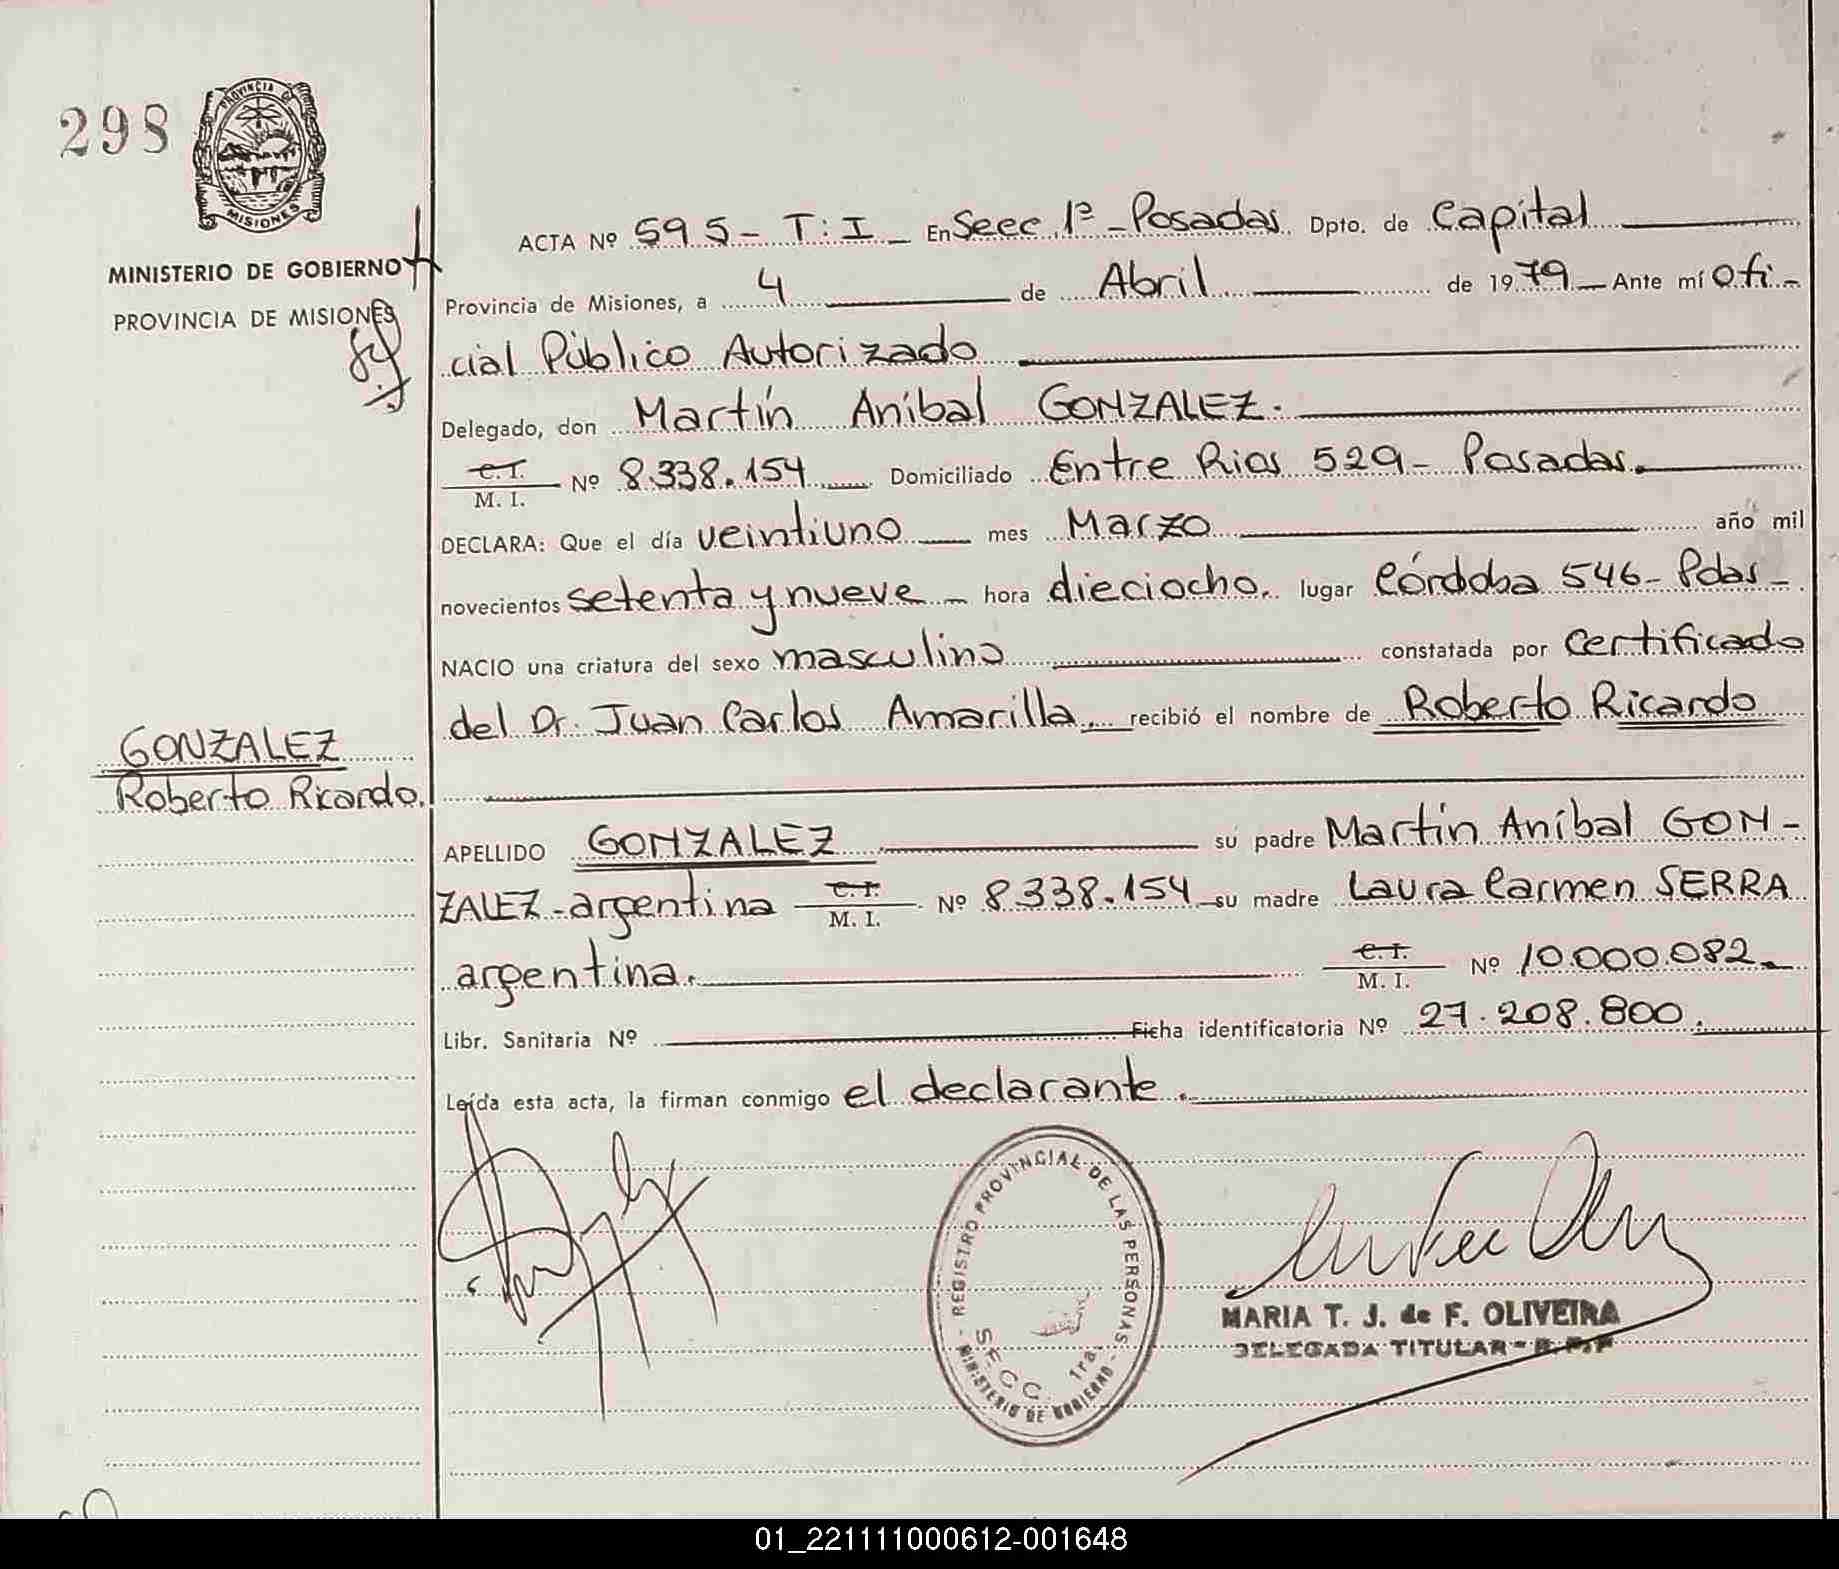 298
PROVINCIA DE
MISIONES
MINISTERIO DE GOBIERNO
PROVINCIA DE MISIONES
ACTA Nº 595 - T: I - En Secc 1ª - Posadas Dpto. de Capital
Provincia de Misiones, a 4 de Abril de 1979 - Ante mí Ofi-
cial Público Autorizado
Delegado, don Martín Aníbal GONZALEZ.
C. I.
M. I. Nº 8.338.154 Domiciliado Entre Rios 529 - Posadas.
DECLARA: Que el día veintiuno mes Marzo año mil
novecientos setenta y nueve - hora dieciocho. lugar Córdoba 546 - Pdas -
NACIO una criatura del sexo masculino constatada por certificado
del Dr. Juan Carlos Amarilla. recibió el nombre de Roberto Ricardo
GONZALEZ
Roberto Ricardo.
APELLIDO GONZALEZ su padre Martín Aníbal GON-
ZALEZ - argentina C. I. M. I. Nº 8.338.154 su madre Laura Carmen SERRA
argentina. C. I. M. I. Nº 10.000.082
Libr. Sanitaria Nº Ficha identificatoria Nº 27.208.800.
Leída esta acta, la firman conmigo el declarante.
REGISTRO PROVINCIAL DE LAS PERSONAS
SECC. 1ra.
MINISTERIO DE GOBIERNO
MARIA T. J. de F. OLIVEIRA
DELEGADA TITULAR
01_221111000612-001648